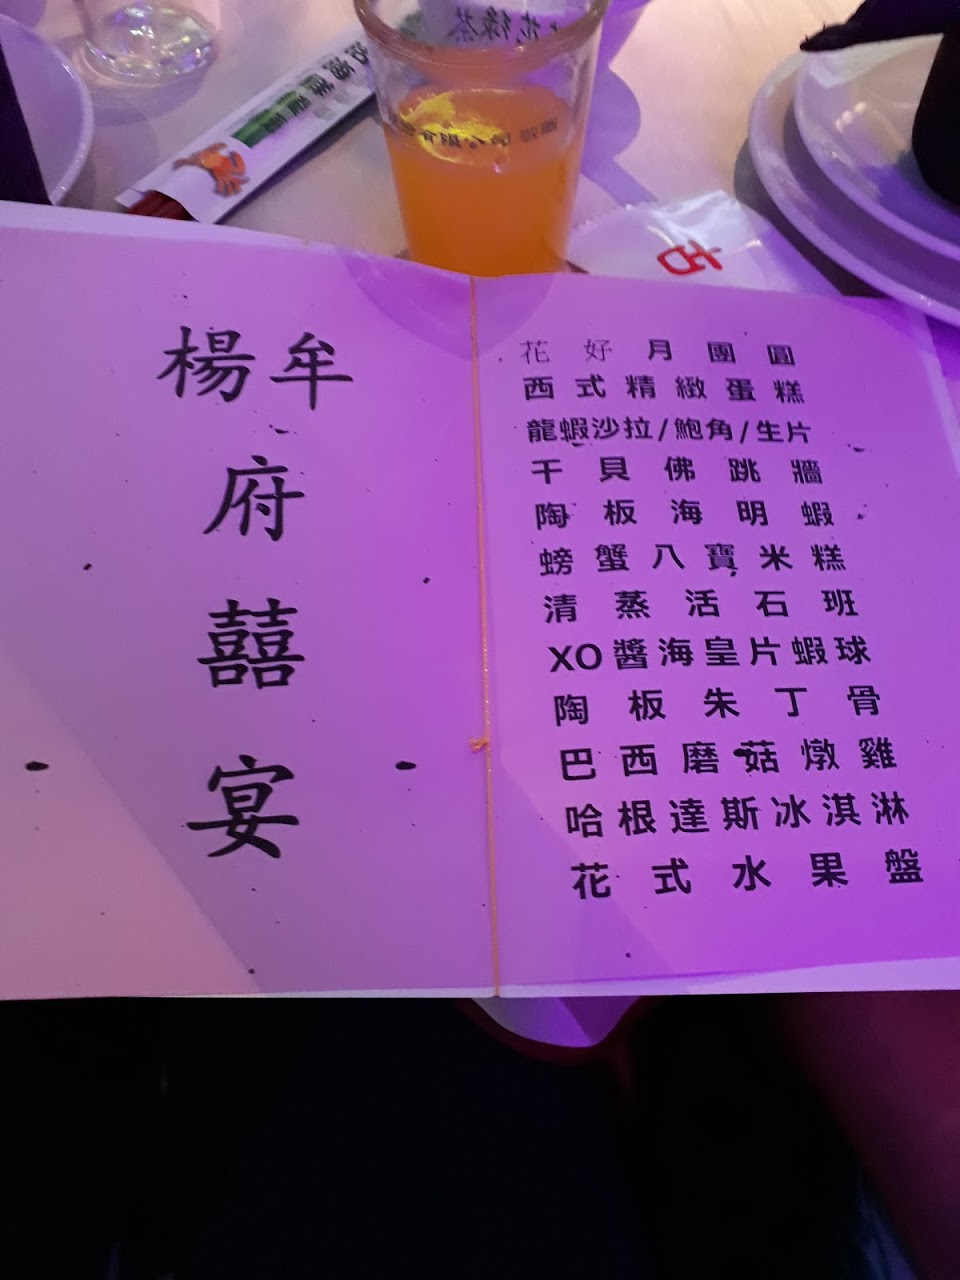 楊牟
府
囍
宴
花好月團圓
西式精緻蛋糕
龍蝦沙拉/鮑角/生片
干貝佛跳牆
陶板海明蝦
螃蟹八寶米糕
清蒸活石班
XO醬海皇片蝦球
陶板朱丁骨
巴西磨菇燉雞
哈根達斯冰淇淋
花式水果盤